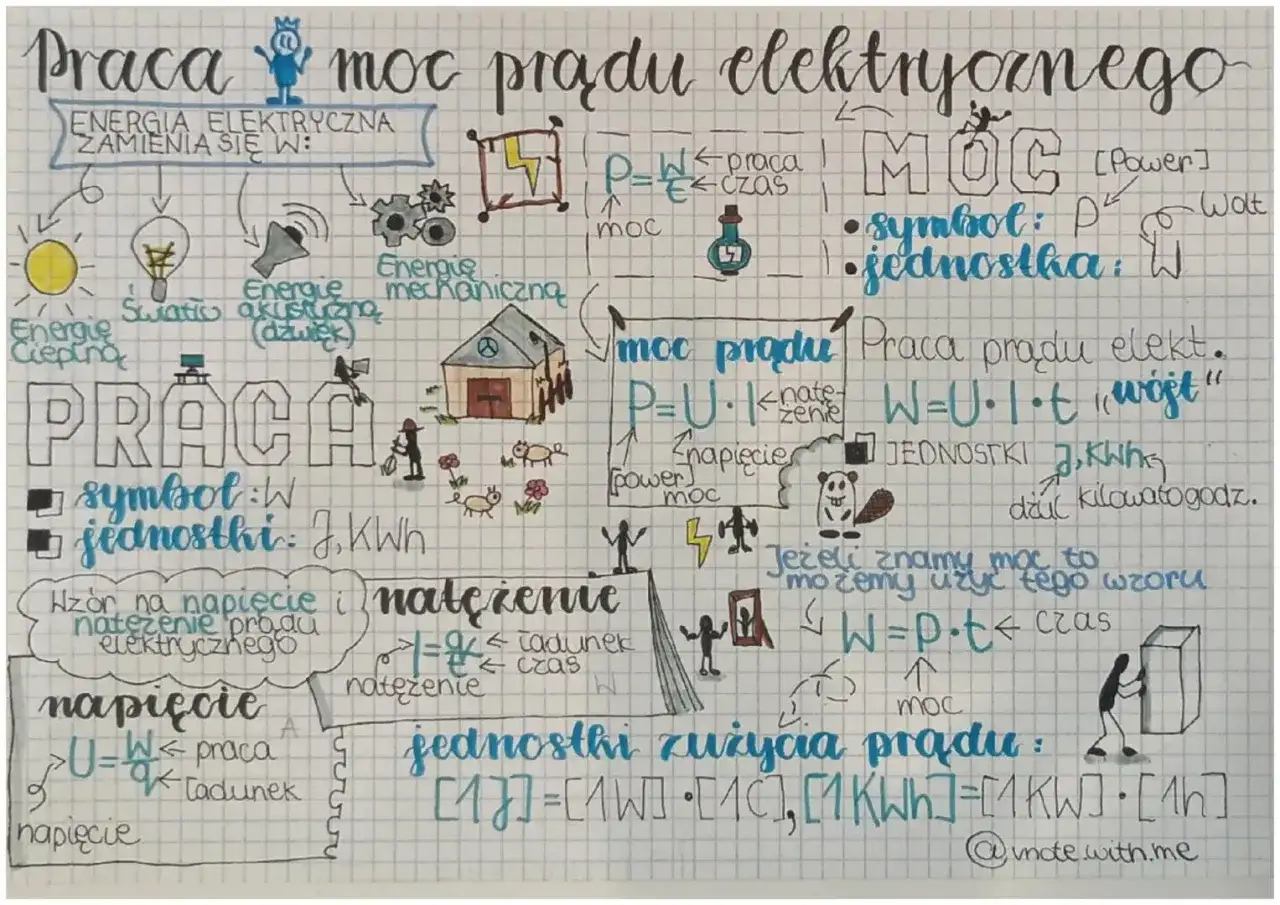 Praca i moc prądu elektrycznego
ENERGIA ELEKTRYCZNA
ZAMIENIA SIĘ W:
Energię
Cieplną
Światło
Energię
akustyczną
(dźwięk)
Energię
mechaniczną
P=W/t
praca
czas
moc
MOC
[Power]
• symbol: P
• jednostka: W
Wat
PRACA
symbol: W
jednostki: J, KWh
moc prądu
P=U·I
natę-
żenie
napięcie
[power]
moc
Praca prądu elekt.
W=U·I·t „wójt“
JEDNOSTKI J, KWh
dżul
kilowatogodz.
Jeżeli znamy moc to
możemy użyć tego wzoru
W=P·t
czas
moc
Wzór na napięcie i
natężenie prądu
elektrycznego
natężenie
I=q/t
ładunek
czas
natężenie
W
napięcie
A
U=W/q
praca
ładunek
napięcie
jednostki zużycia prądu:
[1J]=[1W]·[1C], [1KWh]=[1KW]·[1h]
@note.with.me